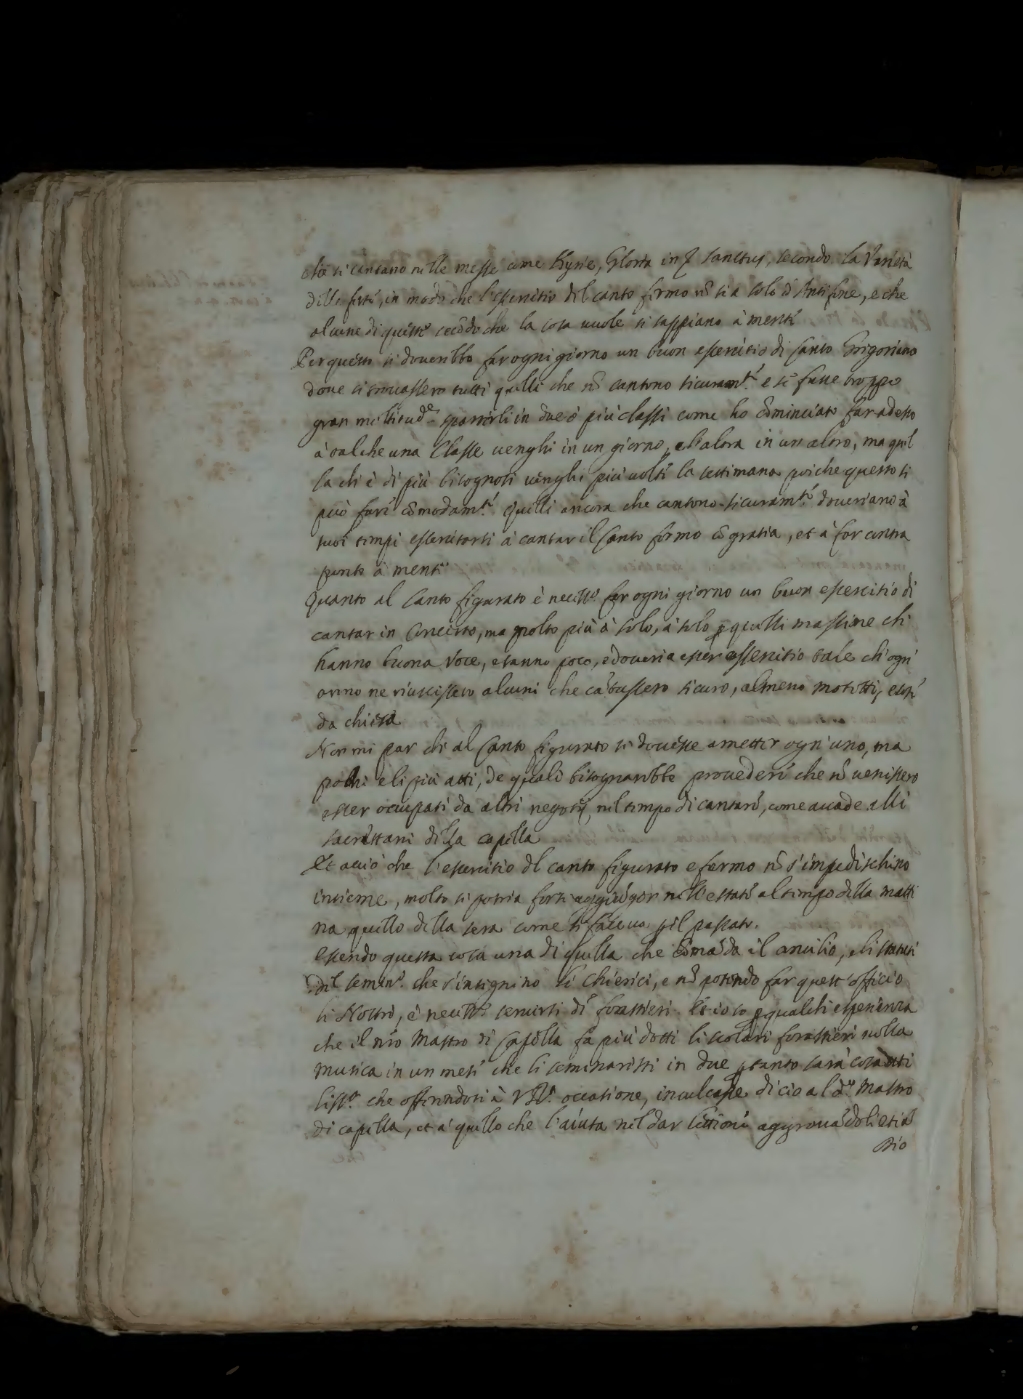 che si cantano nelle messe come Kyrie, Gloria in ex. Sanctus, secondo la varietà
delle feste, in modo che l'essercitio del canto fermo nõ sia solo d'Antifone, e che
alcune di queste secõdo che la cosa vuole si sappiano à mente
Per questo si doverebbe far ogni giorno un buon essercitio di Canto Gregoriano
dove si trovassero tutti quelli che nõ cantono sicuram.te e se fusse troppo
gran moltitud.e spartirli in due ò più classi come ho cõminciato far adesso
à tal che una Classe venghi in un giorno, e l'altra in un altro, ma quel
la ch'è di più bisognosi venghi più volte la settimana poiche questo si
può fare cõmodam.te. Quelli ancora che cantono sicuram.te doveriano à
suoi tempi essercitarsi à cantar il Canto fermo cõ gratia, et à far contra
punto à mente
Quanto al Canto figurato è necess.o far ogni giorno un buon essercitio di
cantar in Concerto, ma molto più à solo, à solo p quelli massime ch'
hanno buona voce, e sanno poco, e doveria esser essercitio tale ch'ogn'
anno ne riuscissero alcuni che cãtassero sicuro, almeno motetti,
da chiesa
Non mi par che al Canto figurato si dovesse ametter ogn'uno, ma
pochi e li più atti, de quali bisognarebbe provedere che nõ venissero
esser occupati da altri negotij nel tempo di cantare, come accade alli
sacristani della capella
Et acciò che l'essercitio del canto figurato e fermo nõ s'impedischino
insieme, molto si potria forsi aggiũger nell'estate al tempo della matti
na quello della sera come si faceva p il passato.
Essendo questa cosa una di quella che comãda il concilio, e li statuti
del semin.o che s'insegnino li Chierici, e nõ potendo far quest'officio
li Nostri, è necess.o servirsi de forastieri. Et io so p qualch'esperienza
che il nr̃o Mastro di Capella fa più dotti li scolari forastieri nella
musica in un mese che li seminaristi in due p tanto sarà cosa uti
liss.a che offerendosi à V.R. occasione, inculcasse di ciò al d.o Mastro
di capella, et a quello che l'aiuta nel dar lettione
stio